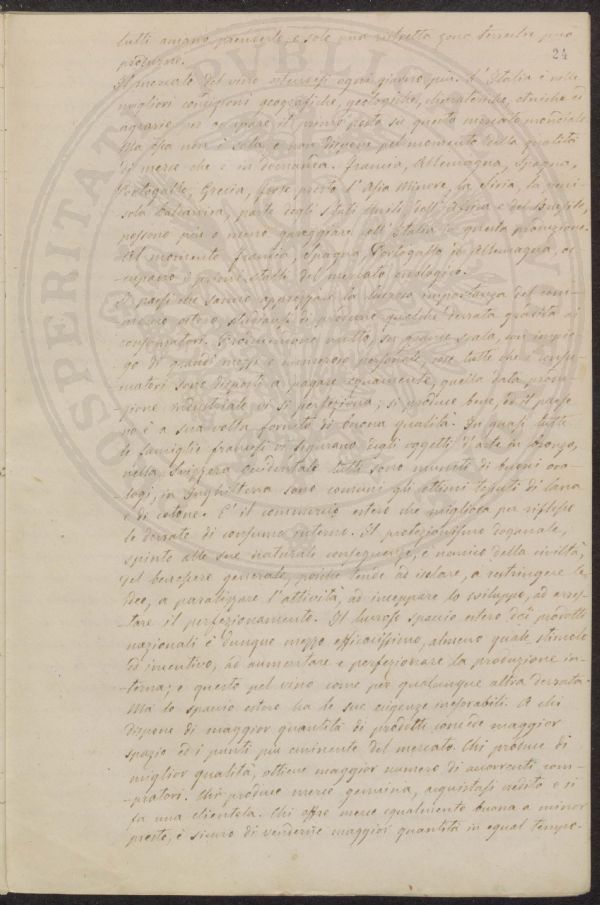 tutti amano prenderle, e sole una ristretta zona terrestre può
24
produrre.
Il mercato del vino estendesi ogni giorno più. L'Italia è nelle
migliori condizioni geografiche, geologiche, climateriche, etniche ed
agrarie per occupare il primo posto su questo mercato mondiale.
Ma essa non è sola, e non dispone pel momento della qualità
di merce che è in domanda. Francia, Allemagna, Spagna,
Portogallo, Grecia, forse presto l'Asia Minore, la Siria, la peni-
sola Balcanica, parte degli Stati civili dell'Africa e del Brasile,
possono più o meno gareggiare coll'Italia in questa produzione.
Pel momento Francia, Spagna, Portogallo ed Allemagna, oc-
cupano i primi stalli del mercato enologico.
I paesi che sanno apprezzare la lucrosa importanza del com-
mercio estero studiansi di produrre quelche derrata gradita ai
consumatori. Producendone molto, su grande scala, con impie-
go di grandi mezzi e numeroso personale, cose tutte che i consu-
matori sono disposti a pagare equamente, quella data produ-
zione industriale vi si perfeziona; si produce bene, ed il paese
ne è a sua volta fornito di buona qualità. In quasi tutte
le famiglie francesi vi seguono degli oggetti d'arte in bronzo,
nella Svizzera Occidentale tutti sono muniti di buoni oro-
logi, in Inghilterra sono comuni gli ottimi tessuti di lana
e di cotone. E' il commercio estero che migliora per riflesso
le derrate di consumo interno. Il protezionismo doganale,
spinto alle sue naturali conseguenze, è nemico della civiltà,
del benessere generale, poichè tende ad isolare, a restringere le
idee, a paralizzare l'attività, ad inceppare lo sviluppo, ad arres-
tare il perfezionamento. Il lucroso spaccio estero dei prodotti
nazionali è dunque mezzo efficacissimo, almeno quale stimolo
ed incentivo, ad aumentare e perfezionare la produzione in-
terna; e questo pel vino come per qualunque altra derrata.
Ma lo spaccio estero ha le sue esigenze inesorabili. A chi
dispone di maggior quantità di prodotti concede maggior
spazio ed i punti più eminenti del mercato. Chi produce di
miglior qualità, ottiene maggior numero di accorrenti com-
pratori. Chi produce merce genuina, acquistasi credito e si
fa una clientela. Chi offre merce egualmente buona a minor
prezzo, è sicuro di venderne maggior quantità in egual tempo.